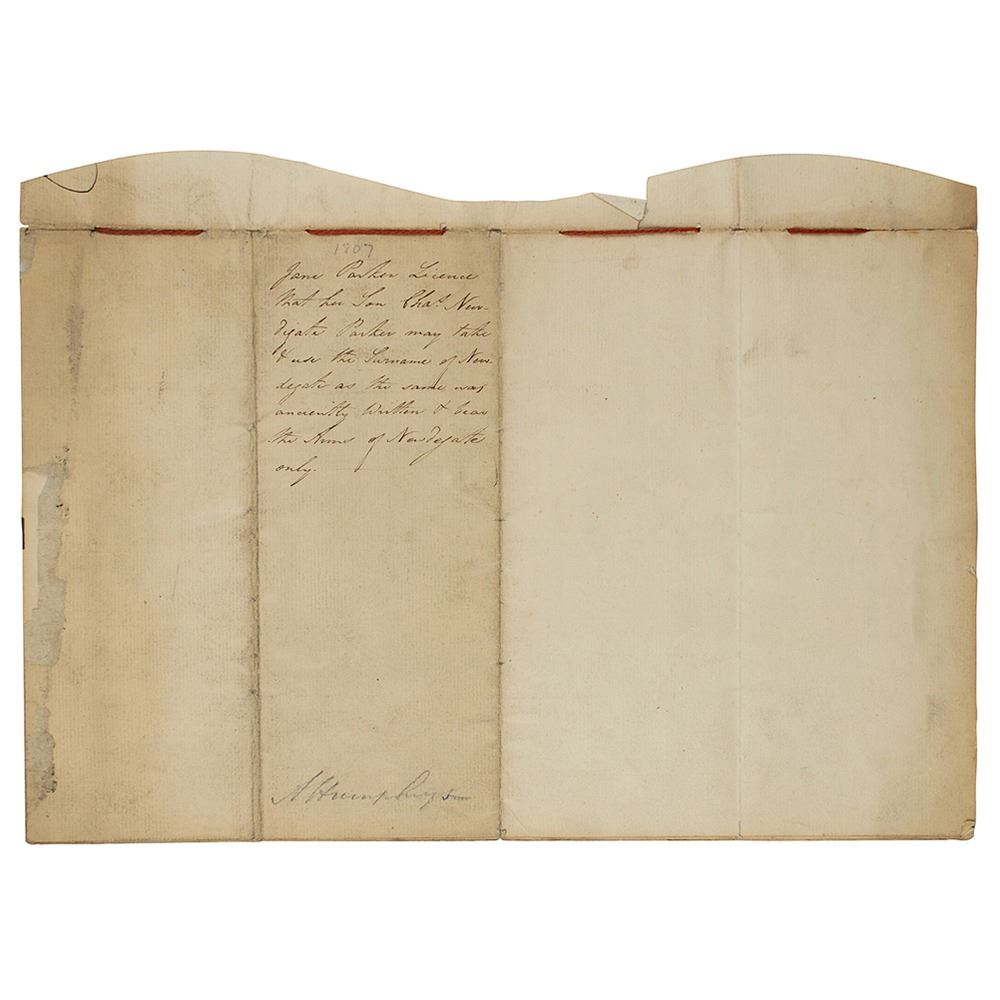 1807
Jane Parker Licence
that her Son Chas. New-
digate Parker may take
& use the Surname of New-
degate as the same was
anciently Written & bear
the Arms of Newdegate
only.